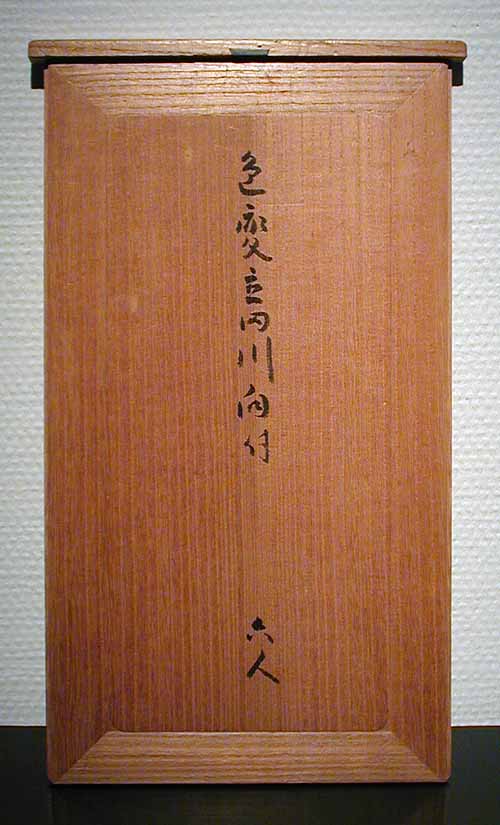 色変立田川向付
六人